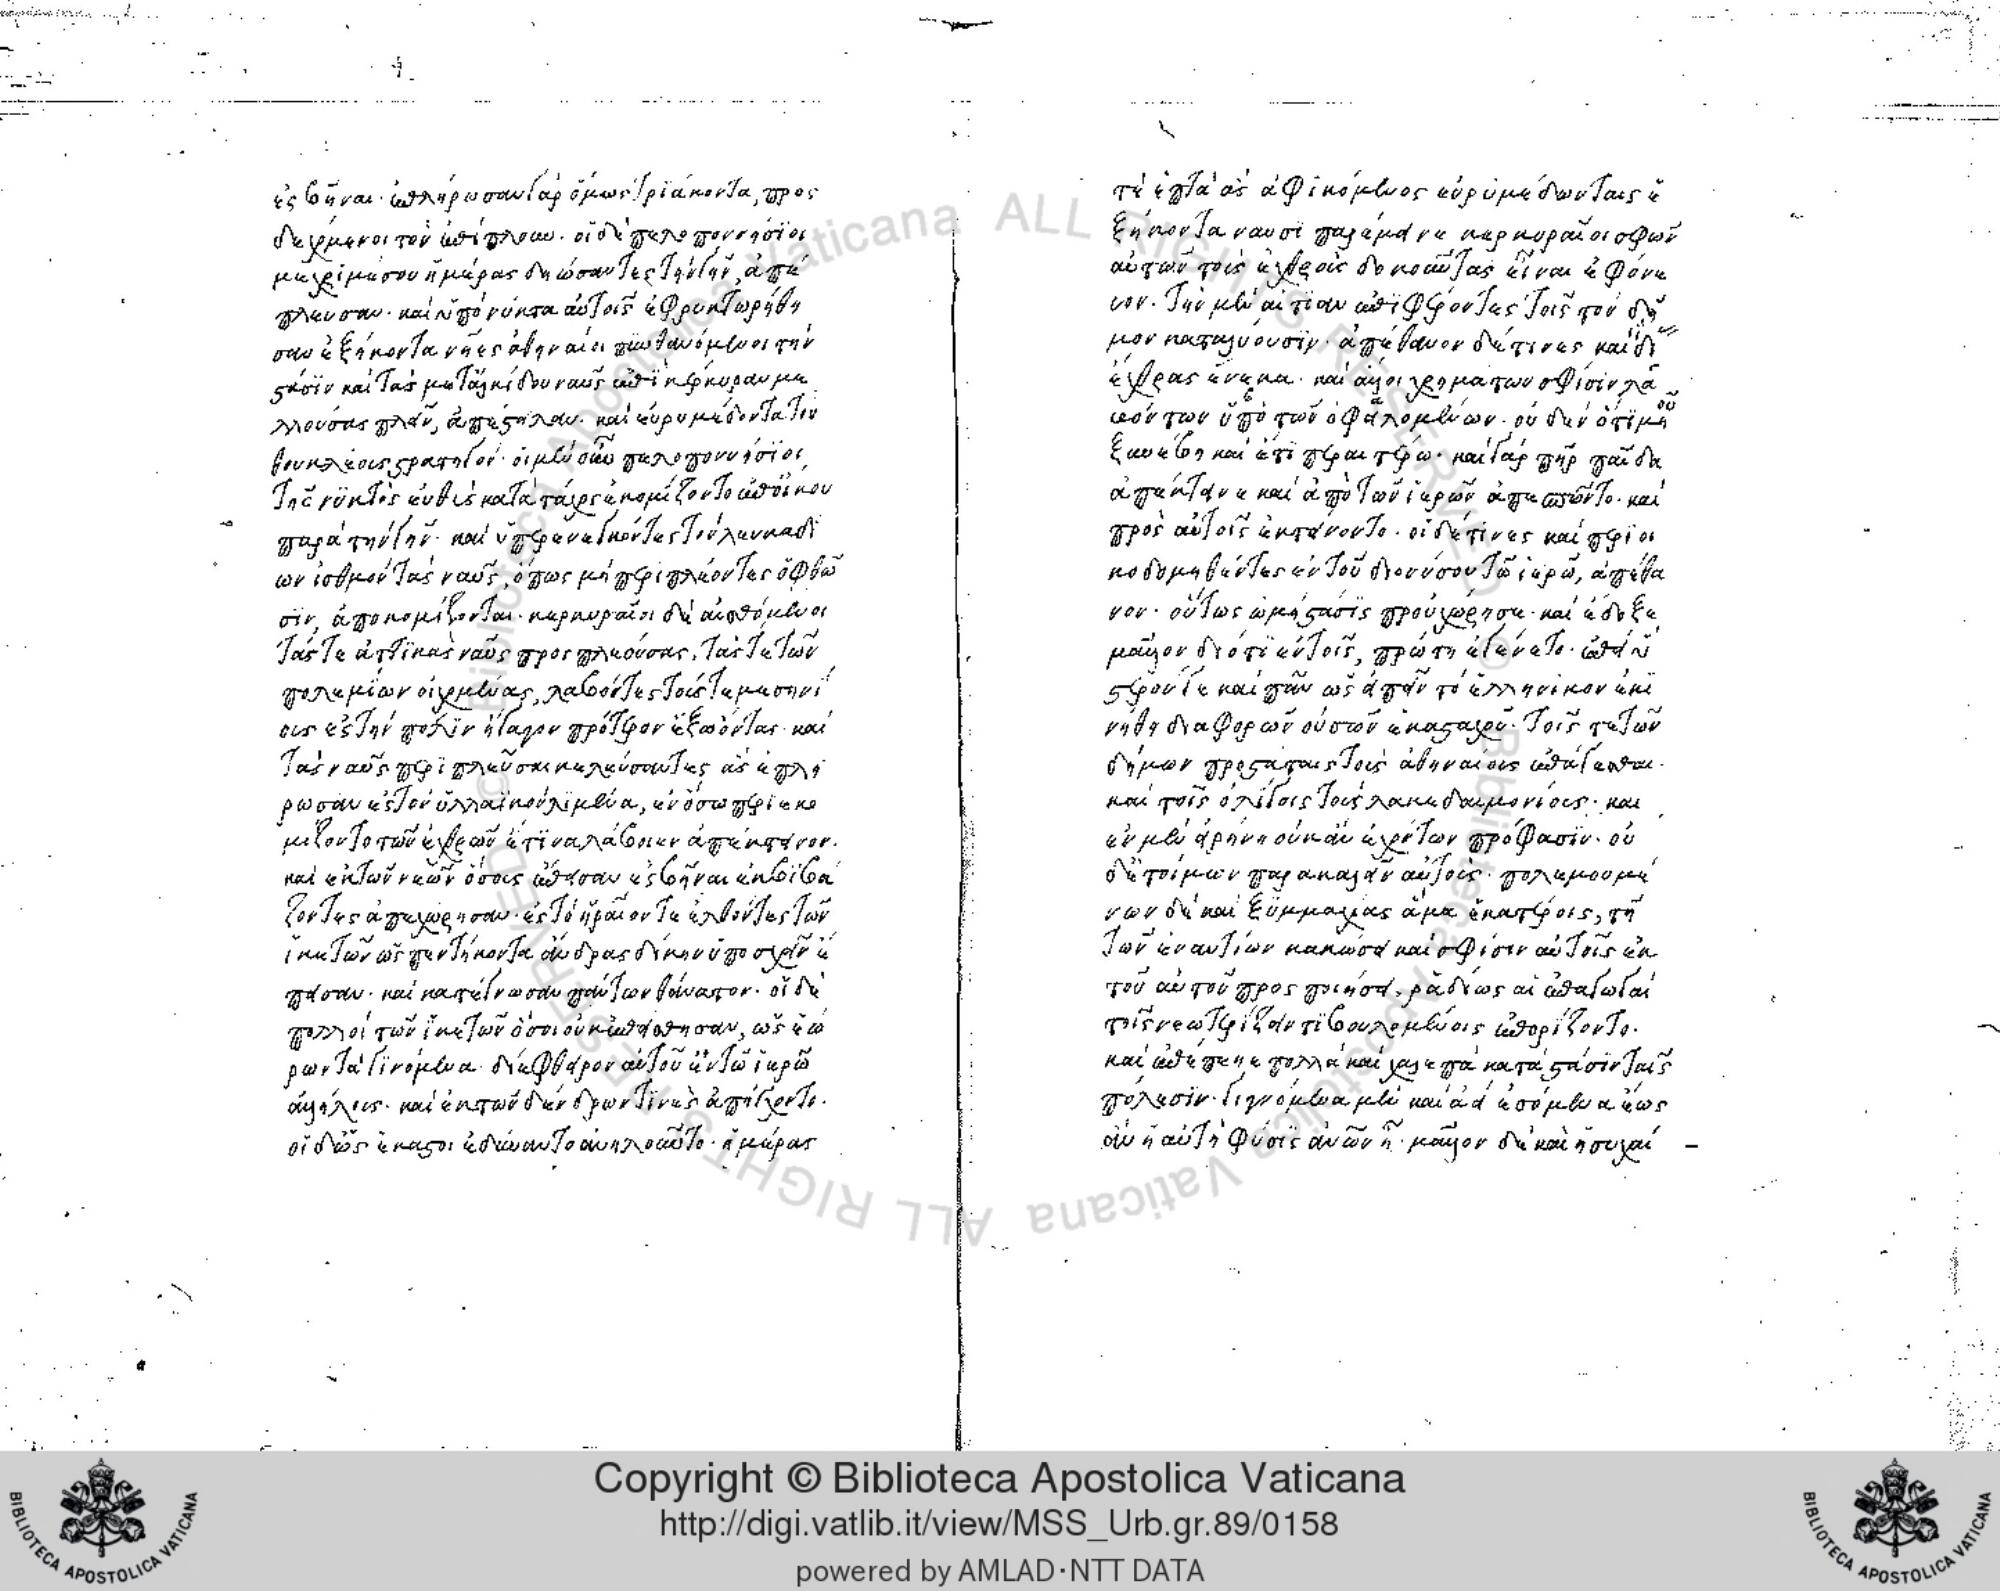 ἐς βῆναι· ἐπλήρωσαν γὰρ ὅμως τριάκοντα, προς
δεχόμενοι τὸν ἐπίπλουν. οἱ δὲ πελοποννήσϊοι
μεχρὶ μέσου ἡμέρας δηώσαντες τὴν γῆν, ἀπέ
πλευσαν· καὶ ὑπὸ νύκτα αὐτοῖς ἐφρυκτωρήθη
σαν ἑξήκοντα νῆες ἀθηναίοι πυνθανόμενοι τὴν
στάσϊν καὶ τὰς μετ᾽ ἀλκίδου ναῦς ἐπὶ κέρκυραν με
λλούσας πλεῖν, ἀπέστειλαν· καὶ εὐρυμέδοντα τὸν
θουκλέοις στρατηγόν· οἱ μὲν οὖν πελοποννήσϊοι
τῆς νϋκτὸς εὐθὶς κατὰ τάχος ἐκομίζοντο ἐπ᾽ οἴκου
παρὰ τὴν γῆν· καὶ ὑπερενεγκόντες τὸν λευκαδϊ
ων ἰσθμὸν τὰς ναῦς, ὅπως μὴ περιπλέοντες ὀφθῶ
σϊν, ἀποκομίζονται· κερκυραῖοι δὲ αἰσθόμενοι
τάς τε ἀττϊκὰς ναῦς προς πλεούσας, τάς τε τῶν
πολεμίων οἰχομένας, λαβόντες τούς τε μεσηνΐ
ους ἐς τὴν πόλϊν ἤγαγον πρότερον ἔξω ὄντας· καὶ
τὰς ναῦς περιπλεῦσαι κελεύσαντες ἃς ἐπλή
ρωσαν ἐς τὸν ὑλλαϊκὸν λϊμένα, ἐν ὅσω περιεκο
μίζοντο τῶν ἐχθρῶν εἴ τϊνα λάβοιεν ἀπέκτεινον.
καὶ ἐκ τῶν νεῶν ὅσους ἔπεισαν ἐς βῆναι ἐκβϊβά
ζοντες ἀπεχώρησαν· ἐς τὸ ἥραῖον τε ἐλθόντες τῶν
ἱκετῶν ὡς πεντήκοντα ἄνδρας δίκην ὑποσχεῖν ἔ
πεισαν· καὶ κατέγνωσαν πάντων θάνατον. οἱ δὲ
πολλοὶ τῶν ἱκετῶν ὅσοι οὐκ ἐπείσθησαν, ὡς ἑώ
ρων τὰ γϊνόμενα διέφθειρον αὐτοῦ ἐν τῶ ἱερῶ
ἀλλήλους· καὶ ἐκ τῶν δένδρων τϊνὲς ἀπήγχοντο.
οἱ δ᾽ ὡς ἕκαστοι ἐδύναντο ἀνηλοῦντο· ἡμέρας
τὲ ἑπτὰ ἃς ἀφικόμενος εὐρυμέδων ταῖς ἑ
ξήκοντα ναυσὶ παρέμεινε κερκυραῖοι σφῶν
αὐτῶν τοὺς ἐχθροὺς δοκοῦντας εἶναι ἐφόνε
υον· τὴν μὲν αἰτίαν ἐπϊφέροντες τοῖς τὸν δῆ
μον καταλύουσϊν· ἀπέθανον δέ τινες καὶ ἰδί
ἔχθρας ἕνεκα· καὶ ἄλλοι χρημάτων σφίσϊν λα
βόντων ὑπὸ τῶν ὀφειλομένων· οὐδὲν ὅ τϊ μὴ οὐ
ξυνέβη καὶ ἔτϊ περαιτέρω· καὶ γὰρ πῆρ παῖδα
ἀπέκτεινε καὶ ἀπὸ τῶν ἱερῶν ἀπεσπῶντο· καὶ
πρὸς αὐτοῖς ἐκτείνοντο· οἱ δέ τινες καὶ περϊοι
κοδομηθέντες ἐν τοῦ διονύσου τῶ ἱερῶ, ἀπέθα
νον· οὕτως ὠμὴ στάσϊς προὐχώρησε· καὶ ἔδοξε
μᾶλλον διότϊ ἐν τοῖς, πρώτη ἐγένετο· ἐπεὶ ὕ
στερόν τε καὶ πᾶν ὡς εἰπεῖν τὸ ἑλληνϊκὸν ἐκϊ
νήθη διαφορῶν οὐσῶν ἑκασταχοῦ· τοῖς τε τῶν
δήμων προστάταις τοὺς ἀθηναίους ἐπάγεσθαι.
καὶ τοῖς ὀλίγοις τοὺς λακεδαιμονίους· και
ἐν μὲν εἰρήνη οὐκ ἂν ἐχόντων πρόφασϊν· οὐ
δ᾽ ἑτοίμων παρακαλεῖν αὐτούς· πολεμουμέ
νων δὲ καὶ ξϋμμαχίας ἅμα ἑκατέροις, τῆ
τῶν ἐναντίων κακώσει καὶ σφίσιν αὐτοῖς ἐκ
τοῦ αὐτοῦ προς ποιήσει, ῥαδίως αἱ ἐπαγωγαὶ
τοῖς νεωτερίζειν τϊ βουλομένοις ἐπορίζοντο.
καὶ ἐπέπεσε πολλὰ καὶ χαλεπὰ κατὰ στάσϊν ταῖς
πόλεσϊν· γιγνόμενα μὲν καὶ ἀεὶ ἐσόμενα ἕως
ἂν ἡ αὐτὴ φύσϊς ἀνων ἦ· μᾶλλον δὲ καὶ ἡσυχαί
Copyright © Biblioteca Apostolica Vaticana
http://digi.vatlib.it/view/MSS_Urb.gr.89/0158
powered by AMLAD·NTT DATA